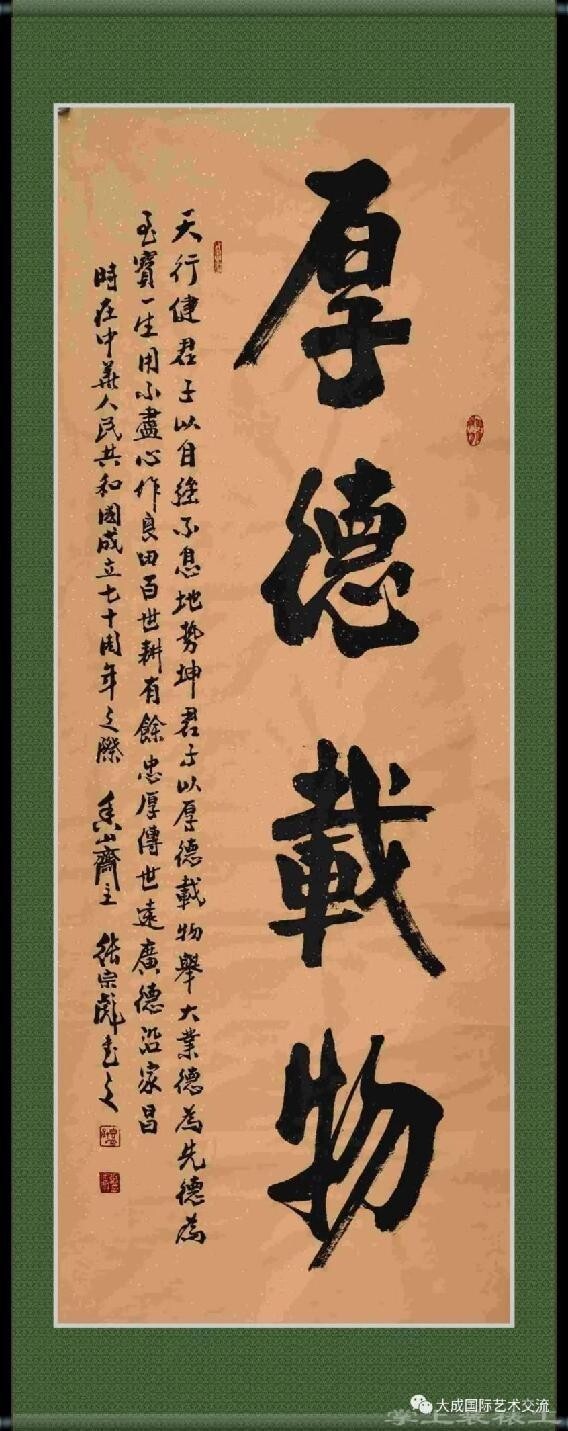 厚德載物
天行健君子以自强不息地势坤君子以厚德載物舉大業德為先德為
至寶一生用不盡心作良田百世耕有餘忠厚傳世遠廣德沿家昌
時在中華人民共和國成立七十周年之際 香山齋主 張宗彪书之
大成国际艺术交流
掌上裱裱工